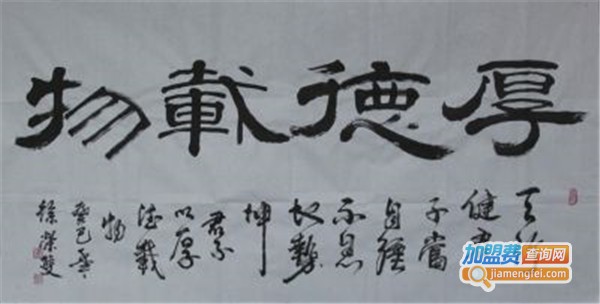 厚德載物
天行
健君
子當
自強
不息
地勢
坤
君子
以厚
德載
物
癸巳
徐榮雙
加盟费查询网
www.jiamengfei.com